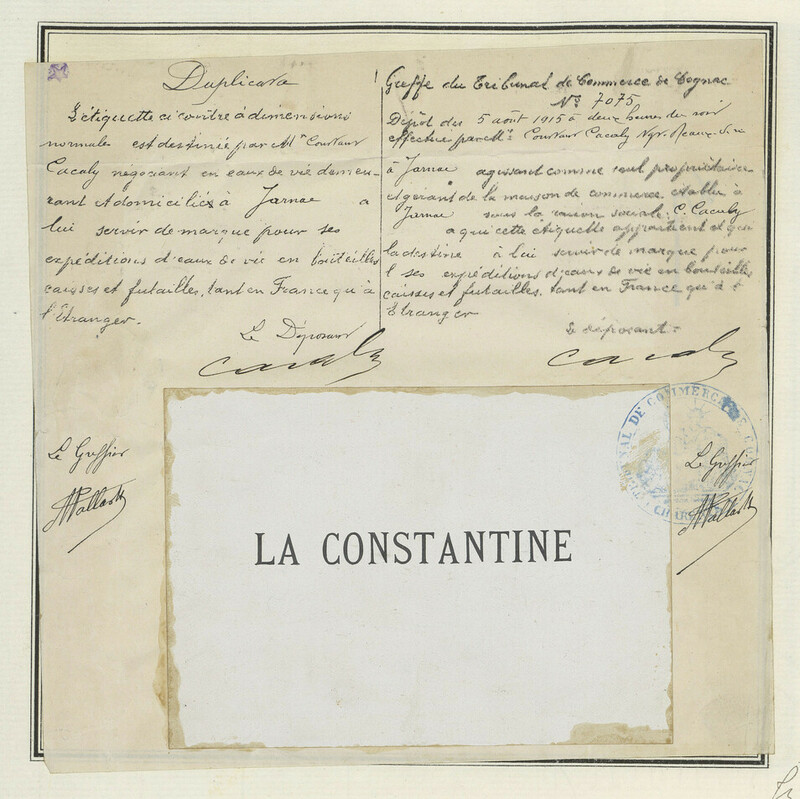 Duplicata
L'étiquette ci contre à dimensions
normales est destinée par Mr Constant
Cacaly négociant en eaux de vie demeu-
rant et domicilié à Jarnac a
lui servir de marque pour ses
expéditions d'eaux de vie en bouteilles
caisses et futailles, tant en France qu'à
l'Étranger.
Le Déposant
Cacaly
Greffe du Tribunal de Commerce de Cognac
N° 7075
Dépôt du 5 août 1915 à deux heures du soir
effectué par Mr Constant Cacaly Ngt. Eaux-d. vie
à Jarnac agissant comme seul propriétaire
et gérant de la maison de commerce établie à
Jarnac sous la raison sociale: C. Cacaly
a qui cette étiquette appartient et qui
la destine à lui servir de marque pour
ses expéditions d'eaux de vie en bouteilles
caisses et futailles. tant en France qu'à l'
Etranger
Le déposant =
Cacaly
Le Greffier
Le Greffier
LA CONSTANTINE